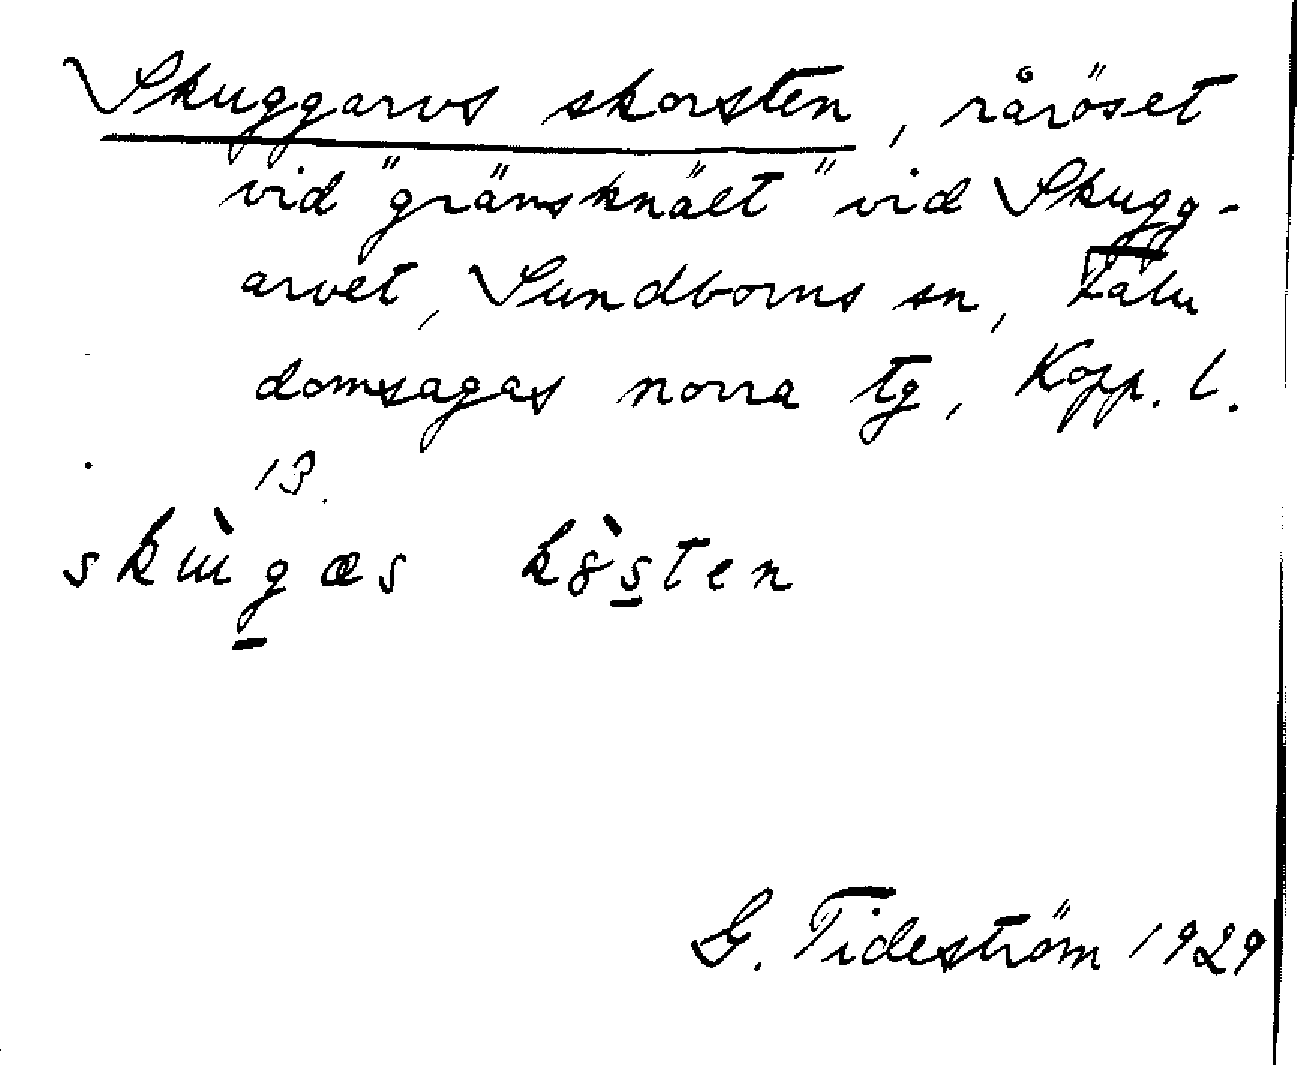 Skuggarvs skorsten, råröset
vid "gränsknäet" vid Skugg-
arvet, Sundborns sn, Falu
domsagas norra tg, Kopp. l.
13.
skɯ̀g̲æs kȣ̀s̲ten
G. Tideström 1929